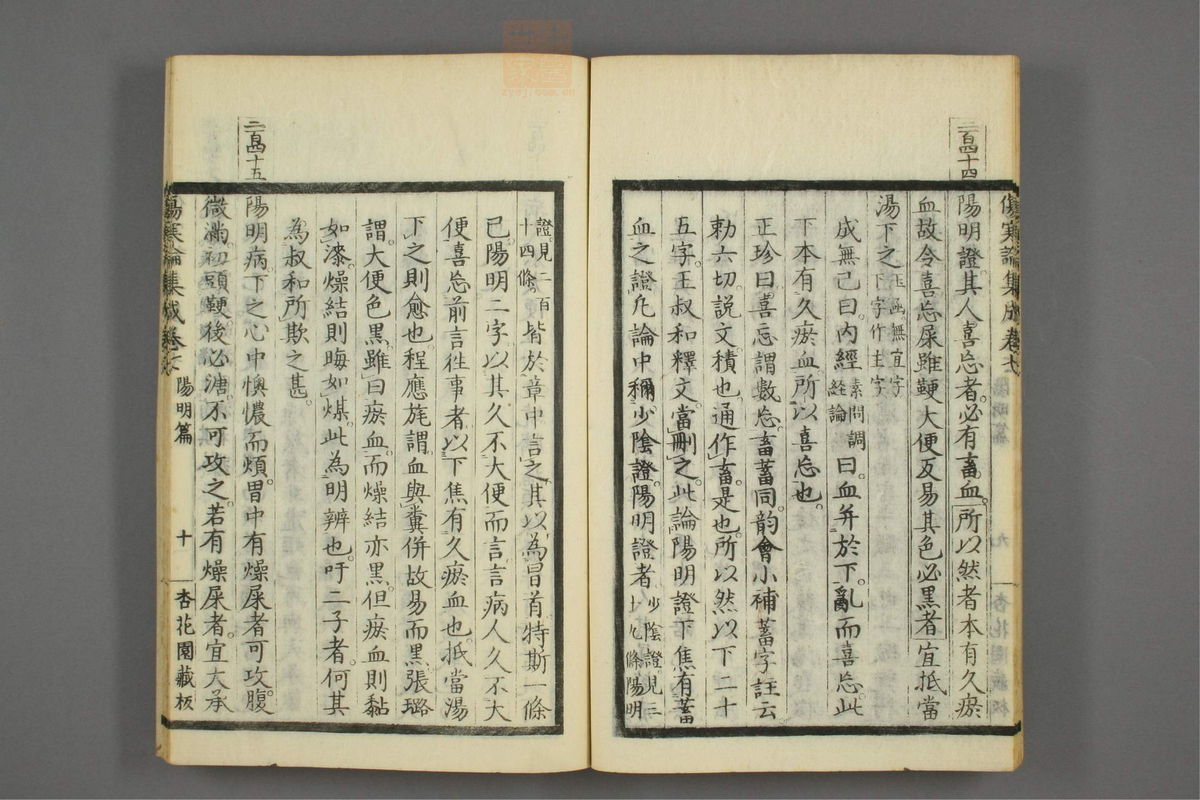 二百四十四
陽明證其人喜忘者必有畜血所以然者本有久瘀
血故令喜忘屎雖鞕大便反易其色必黑者宜抵當
湯下之玉函無宜字
下字作主字
成無己曰內經素問調
經論曰血并於下亂而喜忘此
下本有久瘀血所以喜忘也
正珍曰喜忘謂數忘畜蓄同韵會小補蓄字註云
勅六切說文積也通作畜是也所以然以下二十
五字王叔和釋文當刪之此論陽明證下焦有蓄
血之證凡論中稱少陰證陽明證者少陰證見三
十九條陽明
傷寒論集成卷七
陽明篇
九
杏花園藏板
證見二百
十四條皆於章中言之其以為冒首特斯一條
已陽明二字以其久不大便而言言病人久不大
便喜忘前言徃事者以下焦有久瘀血也抵當湯
下之則愈也程應旄謂血與糞併故易而黑張璐
謂大便色黑雖曰瘀血而燥結亦黑但瘀血則黏
如漆燥結則晦如煤此為明辨也吁二子者何其
為叔和所欺之甚
二百四十五
陽明病下之心中懊憹而煩胃中有燥屎者可攻腹
微滿初頭鞕後必溏不可攻之若有燥屎者宜大承
傷寒論集成卷七
陽明篇
十
杏花園藏板